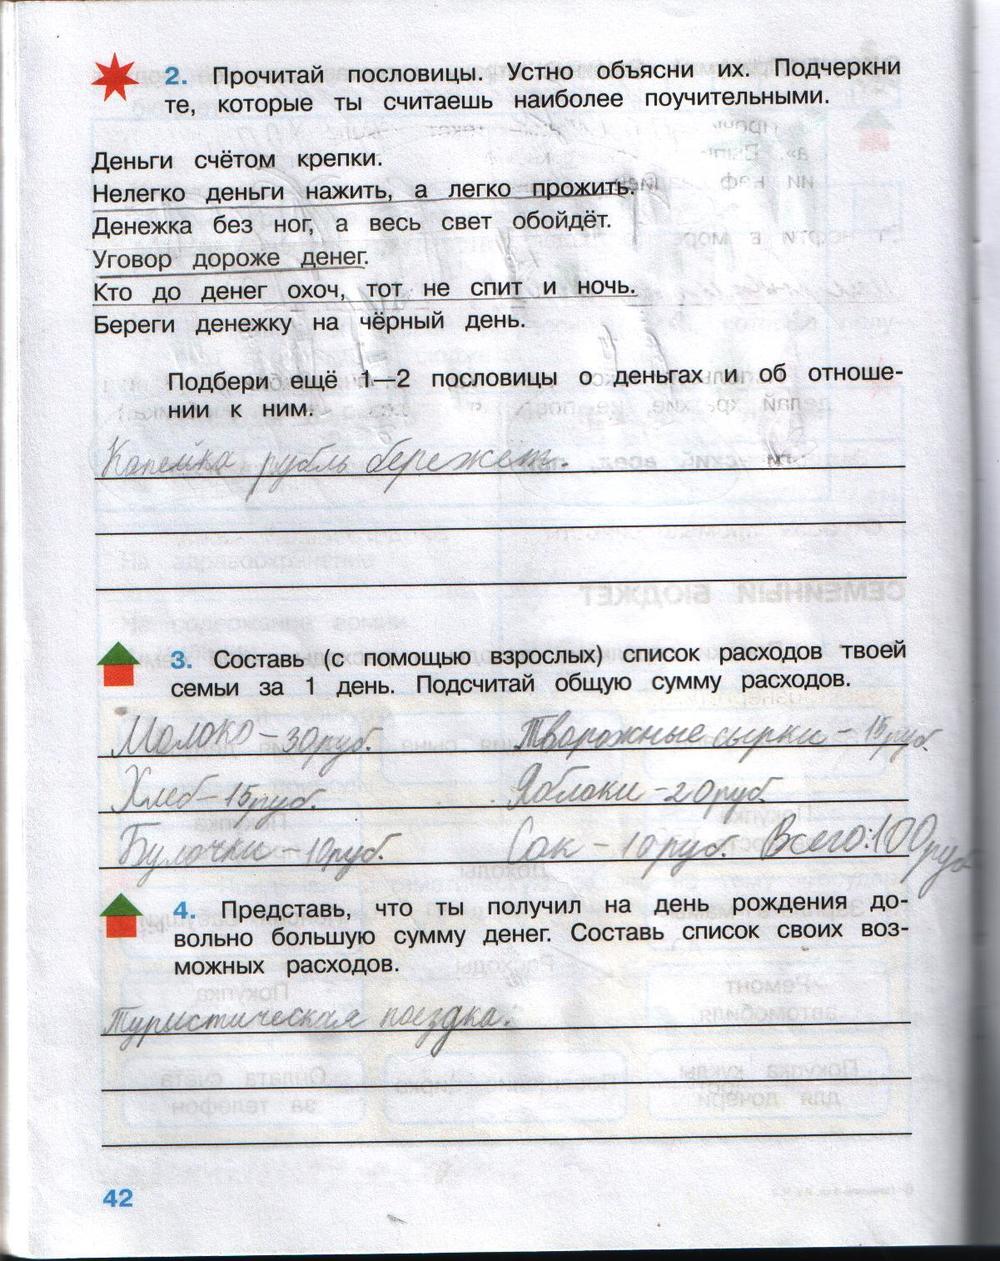 2. Прочитай пословицы. Устно объясни их. Подчеркни
те, которые ты считаешь наиболее поучительными.
Деньги счётом крепки.
Нелегко деньги нажить, а легко прожить.
Денежка без ног, а весь свет обойдёт.
Уговор дороже денег.
Кто до денег охоч, тот не спит и ночь.
Береги денежку на чёрный день.
Подбери ещё 1—2 пословицы о деньгах и об отноше-
нии к ним.
Копейка рубль бережет.
СЕМЕЙНЫЙ БЮДЖЕТ
3. Составь (с помощью взрослых) список расходов твоей
семьи за 1 день. Подсчитай общую сумму расходов.
Молоко – 30руб. Творожные сырки – 15руб.
Хлеб – 15руб. Яблоки – 20руб
Булочки – 10руб. Сок – 10руб. Всего:100руб
4. Представь, что ты получил на день рождения до-
вольно большую сумму денег. Составь список своих воз-
можных расходов.
Туристическая поездка.
42